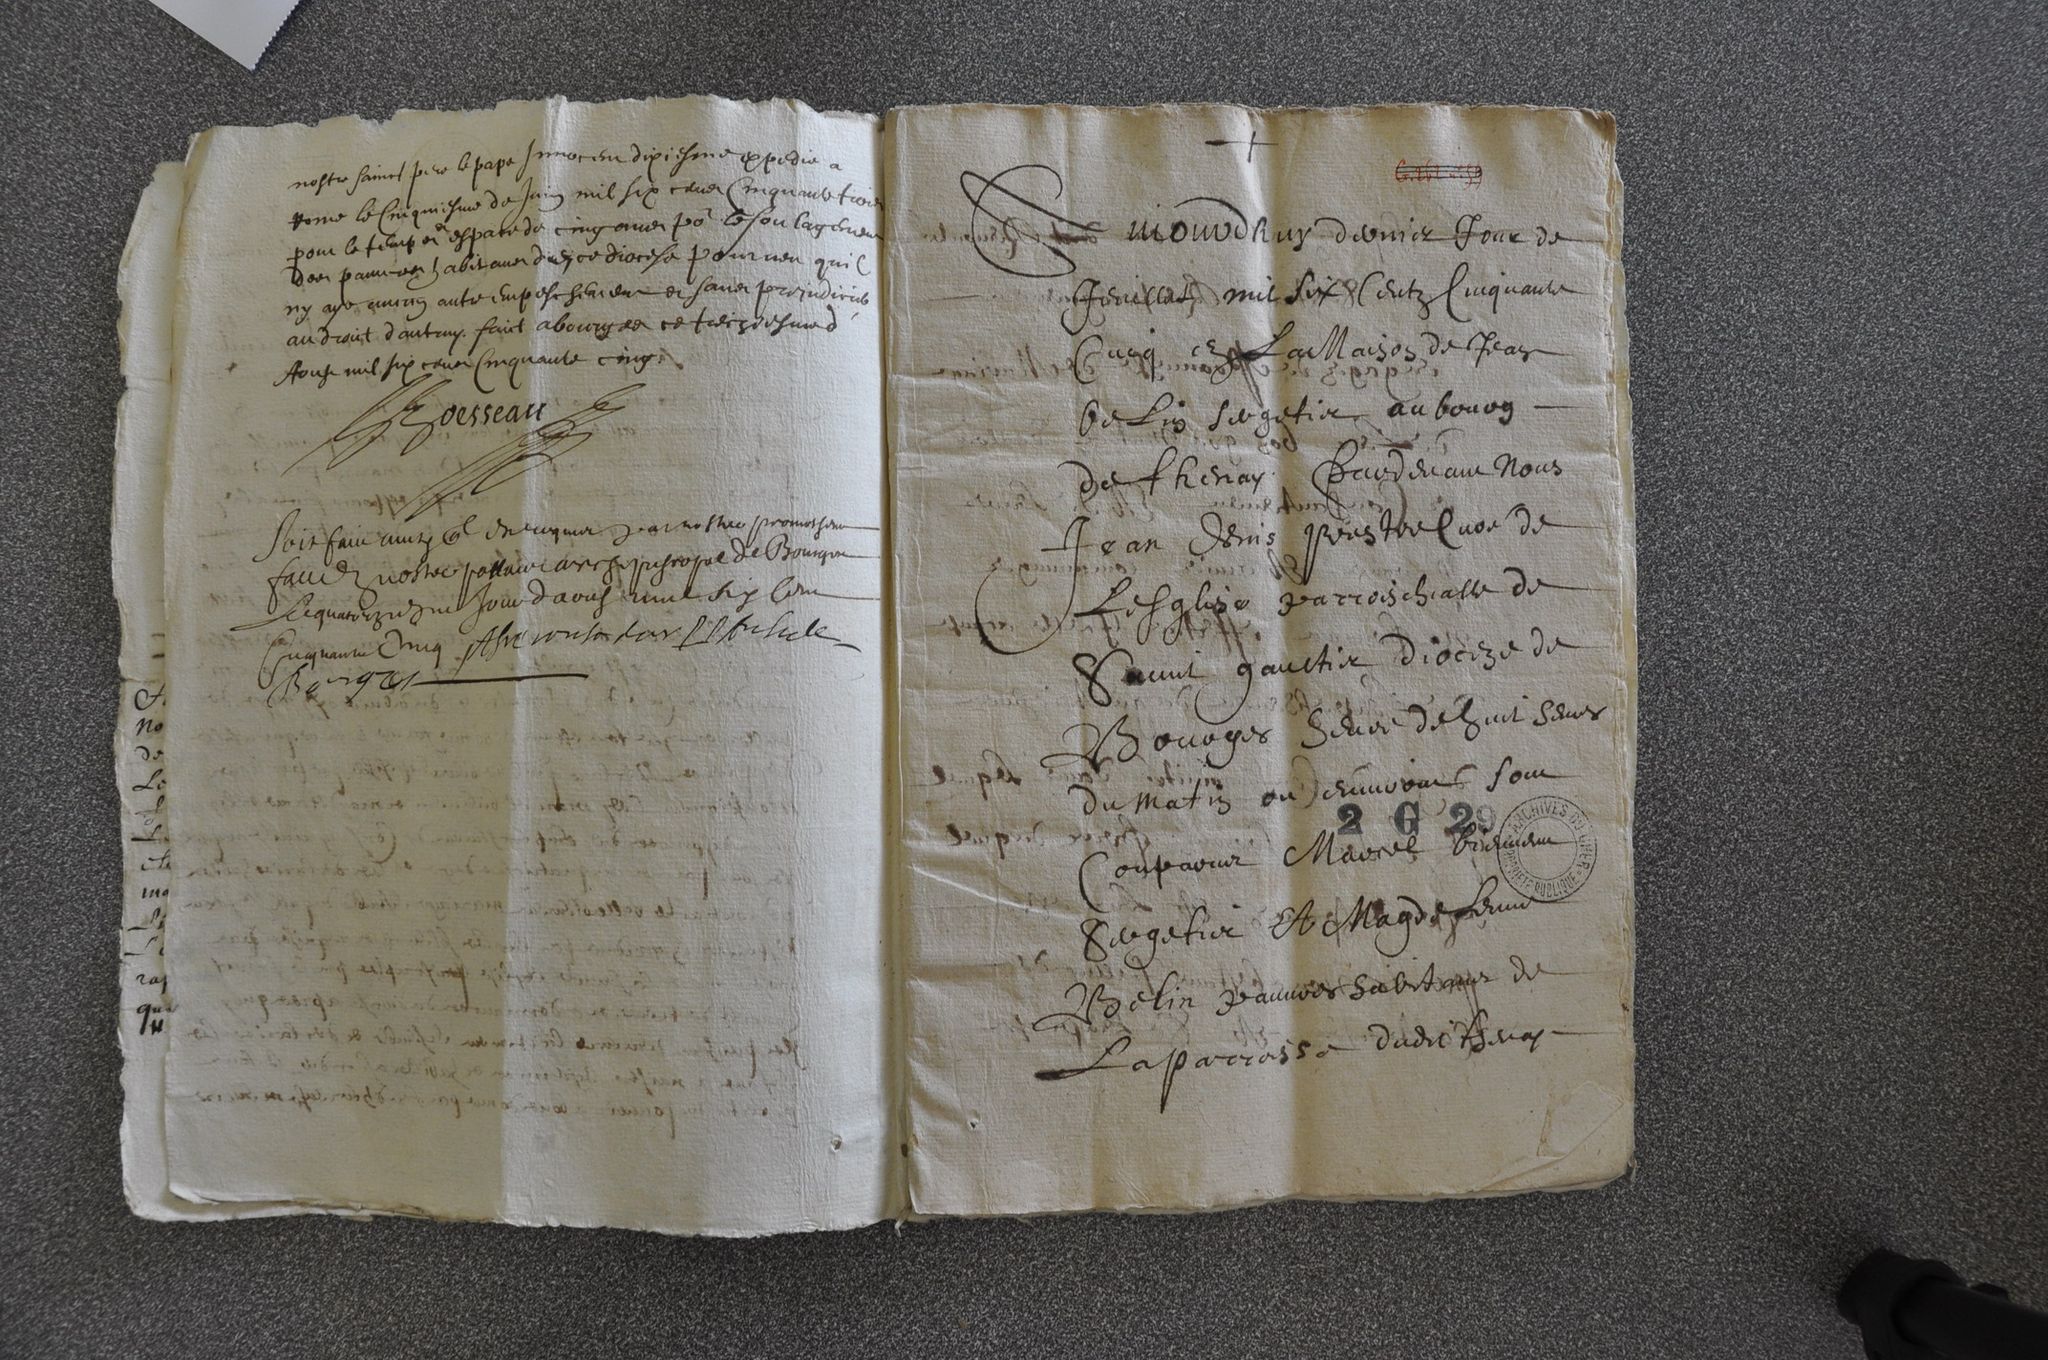 nostre sainct pere le pape Innocen dixiesme expedie a
rome le cinquiesme de Juin mil six cens cinquante trois
pour le temps et espace de cinq annes po^r le soulagement
des pauvres habitans dudict diocese pourveu quil
ny aye aucun autre empeschement et sans prejudicier
au droit d'autruy. faict a bourges ce treiziesme d
Aoust mil six cens cinquante cinq.
Boesseau
Soit faict ainsy nostre promotheur
faict en nostre pallais archiepiscopal de Bourges
Le quatorziesme Jour daoust mil six cens
Cinquante Cinq
Bourges
Aujourdhuy dernier Jour de
Jeuillet mil six Centz Cinquante
Cinq en La Maison de Jean
belin sergetier au bourg
de thenay Pardevant Nous
Jean Denis prestre Curé de
Lesglise parroischialle de
Sainct gaultier dioceze de
Bourges heure de huit heures
du matin ou environt sont
Comparus Marcel
Sergetier Et Magdelenne
Belin pauvres habitans de
La parroisse dudict thenay
2 G 29
ARCHIVES DU CHER
PROPRIETE PUBLIQUE